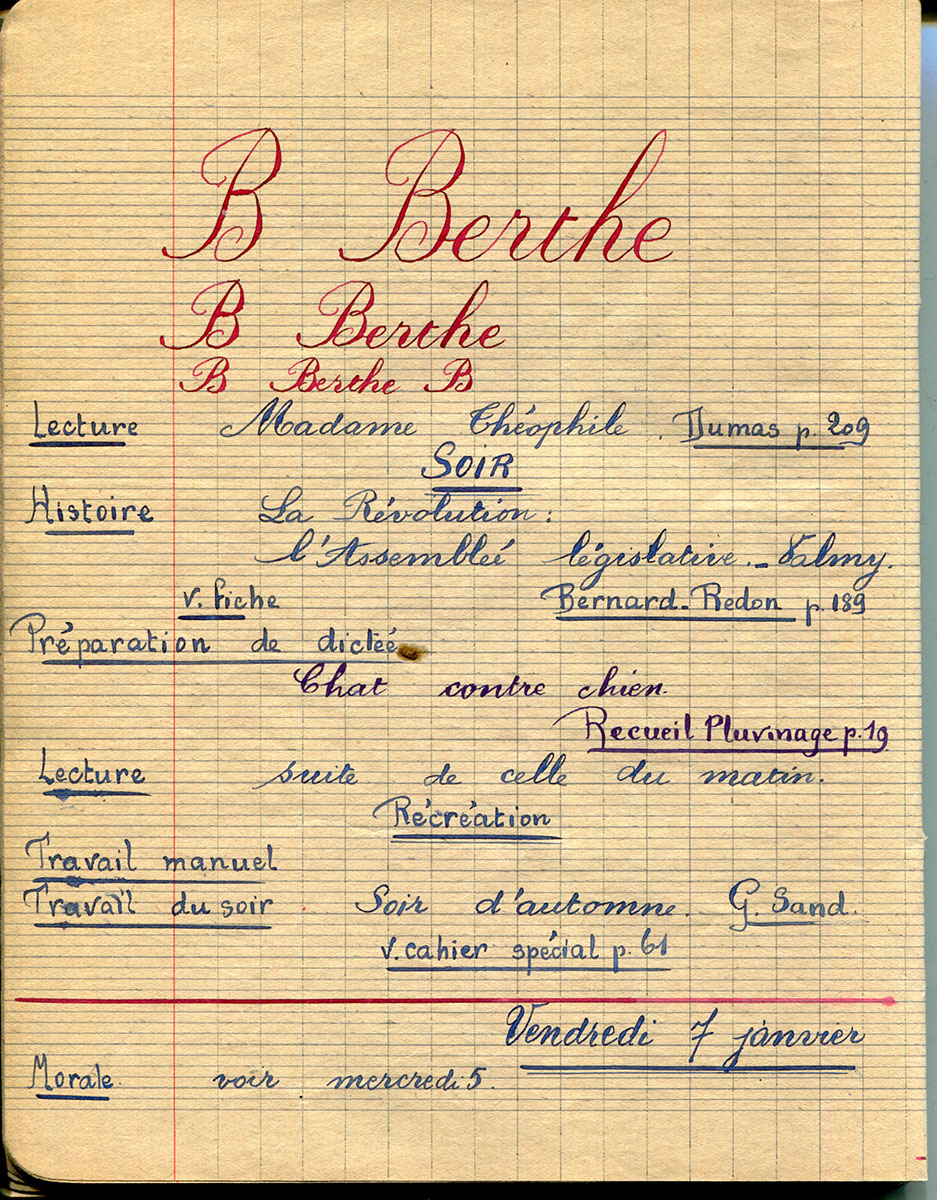 B Berthe
B Berthe
B Berthe B
Lecture Madame Théophile. Dumas p. 209
SOIR
Histoire La Révolution :
l'Assembleé législative._ Valmy.
v. fiche Bernard-Redon p. 189
Préparation de dicteé
Chat contre chien.
Recueil Pluvinage p. 19
Lecture suite de celle du matin.
Récréation
Travail manuel
Travail du soir. Soir d'automne. G. Sand.
v. cahier spécial p. 61
Vendredi 7 janvier
Morale. voir mercredi 5.